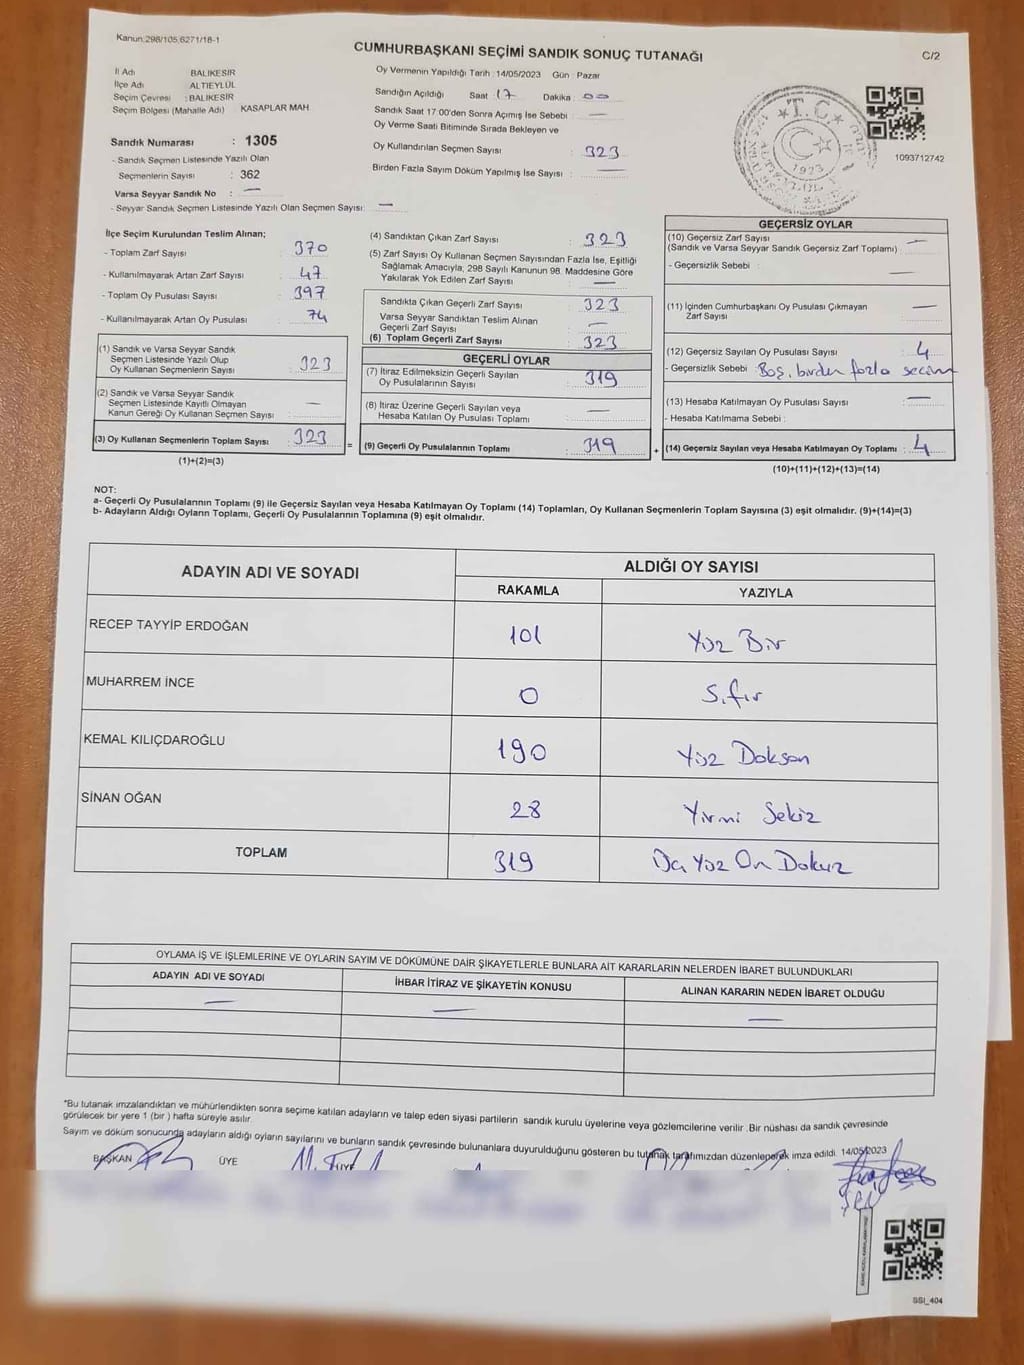 Kanun:298/105,6271/18-1
CUMHURBAŞKANI SEÇİMİ SANDIK SONUÇ TUTANAĞI
C/2
İl Adı BALIKESİR
İlçe Adı ALTIEYLÜL
Seçim Çevresi : BALIKESİR
Seçim Bölgesi (Mahalle Adı) KASAPLAR MAH
Sandık Numarası : 1305
- Sandık Seçmen Listesinde Yazılı Olan
Seçmenlerin Sayısı : 362
Varsa Seyyar Sandık No : —
- Seyyar Sandık Seçmen Listesinde Yazılı Olan Seçmen Sayısı: —
Oy Vermenin Yapıldığı Tarih : 14/05/2023 Gün : Pazar
Sandığın Açıldığı Saat : 17 Dakika : 00
Sandık Saat 17:00'den Sonra Açımış İse Sebebi : —
Oy Verme Saati Bitiminde Sırada Bekleyen ve
Oy Kullandırılan Seçmen Sayısı : 323
Birden Fazla Sayım Döküm Yapılmış İse Sayısı : —
T.C.
1923
1093712742
İlçe Seçim Kurulundan Teslim Alınan;
- Toplam Zarf Sayısı : 370
- Kullanılmayarak Artan Zarf Sayısı : 47
- Toplam Oy Pusulası Sayısı : 397
- Kullanılmayarak Artan Oy Pusulası : 74
(1) Sandık ve Varsa Seyyar Sandık
Seçmen Listesinde Yazılı Olup
Oy Kullanan Seçmenlerin Sayısı : 323
(2) Sandık ve Varsa Seyyar Sandık
Seçmen Listesinde Kayıtlı Olmayan
Kanun Gereği Oy Kullanan Seçmen Sayısı : —
(3) Oy Kullanan Seçmenlerin Toplam Sayısı : 323
(1)+(2)=(3)
(4) Sandıktan Çıkan Zarf Sayısı : 323
(5) Zarf Sayısı Oy Kullanan Seçmen Sayısından Fazla İse, Eşitliği
Sağlamak Amacıyla, 298 Sayılı Kanunun 98. Maddesine Göre
Yakılarak Yok Edilen Zarf Sayısı : —
Sandıkta Çıkan Geçerli Zarf Sayısı : 323
Varsa Seyyar Sandıktan Teslim Alınan
Geçerli Zarf Sayısı : —
(6) Toplam Geçerli Zarf Sayısı : 323
GEÇERLİ OYLAR
(7) İtiraz Edilmeksizin Geçerli Sayılan
Oy Pusulalarının Sayısı : 319
(8) İtiraz Üzerine Geçerli Sayılan veya
Hesaba Katılan Oy Pusulası Toplamı : —
= (9) Geçerli Oy Pusulalarının Toplamı : 319 +
GEÇERSİZ OYLAR
(10) Geçersiz Zarf Sayısı : —
(Sandık ve Varsa Seyyar Sandık Geçersiz Zarf Toplamı)
- Geçersizlik Sebebi : —
(11) İçinden Cumhurbaşkanı Oy Pusulası Çıkmayan : —
Zarf Sayısı
(12) Geçersiz Sayılan Oy Pusulası Sayısı : 4
- Geçersizlik Sebebi : Boş, birden fazla seçim
(13) Hesaba Katılmayan Oy Pusulası Sayısı : —
- Hesaba Katılmama Sebebi :
(14) Geçersiz Sayılan veya Hesaba Katılmayan Oy Toplamı : 4
(10)+(11)+(12)+(13)=(14)
NOT:
a- Geçerli Oy Pusulalarının Toplamı (9) ile Geçersiz Sayılan veya Hesaba Katılmayan Oy Toplamı (14) Toplamları, Oy Kullanan Seçmenlerin Toplam Sayısına (3) eşit olmalıdır. (9)+(14)=(3)
b- Adayların Aldığı Oyların Toplamı, Geçerli Oy Pusulalarının Toplamına (9) eşit olmalıdır.
ADAYIN ADI VE SOYADI
ALDIĞI OY SAYISI
RAKAMLA YAZIYLA
RECEP TAYYİP ERDOĞAN 101 Yüz Bir
MUHARREM İNCE 0 Sıfır
KEMAL KILIÇDAROĞLU 190 Yüz Doksan
SİNAN OĞAN 28 Yirmi Sekiz
TOPLAM 319 Üç Yüz On Dokuz
OYLAMA İŞ VE İŞLEMLERİNE VE OYLARIN SAYIM VE DÖKÜMÜNE DAİR ŞİKAYETLERLE BUNLARA AİT KARARLARIN NELERDEN İBARET BULUNDUKLARI
ADAYIN ADI VE SOYADI İHBAR İTİRAZ VE ŞİKAYETİN KONUSU ALINAN KARARIN NEDEN İBARET OLDUĞU
— — —
*Bu tutanak imzalandıktan ve mühürlendikten sonra seçime katılan adayların ve talep eden siyasi partilerin sandık kurulu üyelerine veya gözlemcilerine verilir .Bir nüshası da sandık çevresinde
görülecek bir yere 1 (bir ) hafta süreyle asılır.
Sayım ve döküm sonucunda adayların aldığı oyların sayılarını ve bunların sandık çevresinde bulunanlara duyurulduğunu gösteren bu tutanak tarafımızdan düzenlenerek imza edildi. 14/05/2023
BAŞKAN ÜYE ÜYE
SSI_404